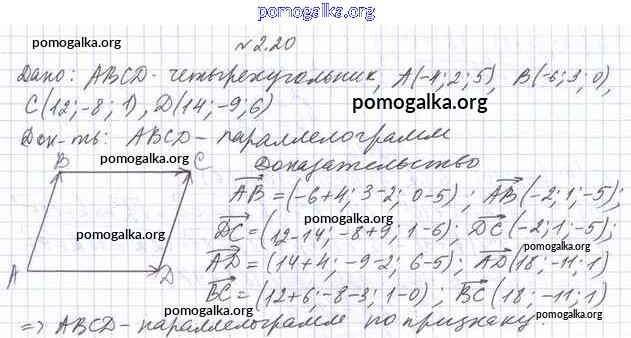 pomogalka.org
pomogalka.org
№2.20
Дано: ABCD - четырехугольник, A(-4; 2; 5), B(-6; 3; 0),
C(12; -8; 1), D(14; -9; 6)
pomogalka.org
Док-ть: ABCD - параллелограмм
B C Доказательство
pomogalka.org
AB = (-6+4; 3-2; 0-5); AB(-2; 1; -5);
pomogalka.org
DC = (12-14; -8+9; 1-6); DC(-2; 1; -5);
pomogalka.org
pomogalka.org
AD = (14+4; -9-2; 6-5); AD(18; -11; 1)
A D
BC = (12+6; -8-3; 1-0); BC(18; -11; 1)
pomogalka.org
=> ABCD - параллелограмм по признаку.